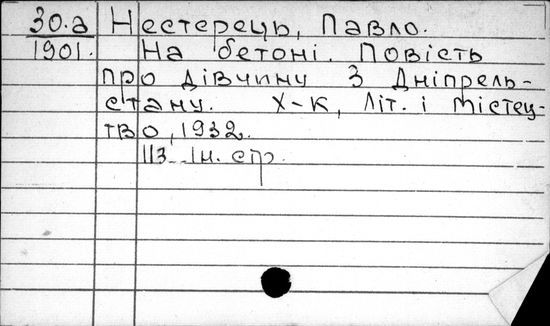 30.а Нестерець, Павло.
1901. На бетоні. Повість
про дівчину з Дніпрель-
стану. Х-К, Літ. і Містец-
тво, 1932.
113 .. Ін. стр.